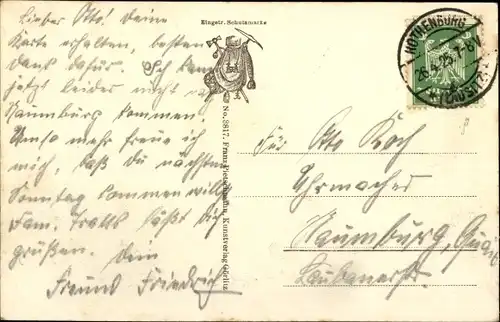 Lieber Otto! Deine
Karte erhalten, besten
Dank dafür. Ich kann
jetzt leider nicht nach
Naumburg kommen.
Umso mehr freue ich
mich, daß Du nächsten
Sonntag kommen willst
Fam. läßt Dich
grüßen. Dein
Freund Friedrich
Eingetr. Schutzmarke
No. 3817. Franz Kunstverlag Görlitz
ROTHENBURG
Für Otto Koch
Uhrmacher
Naumburg, Queis
Laubanerstr.